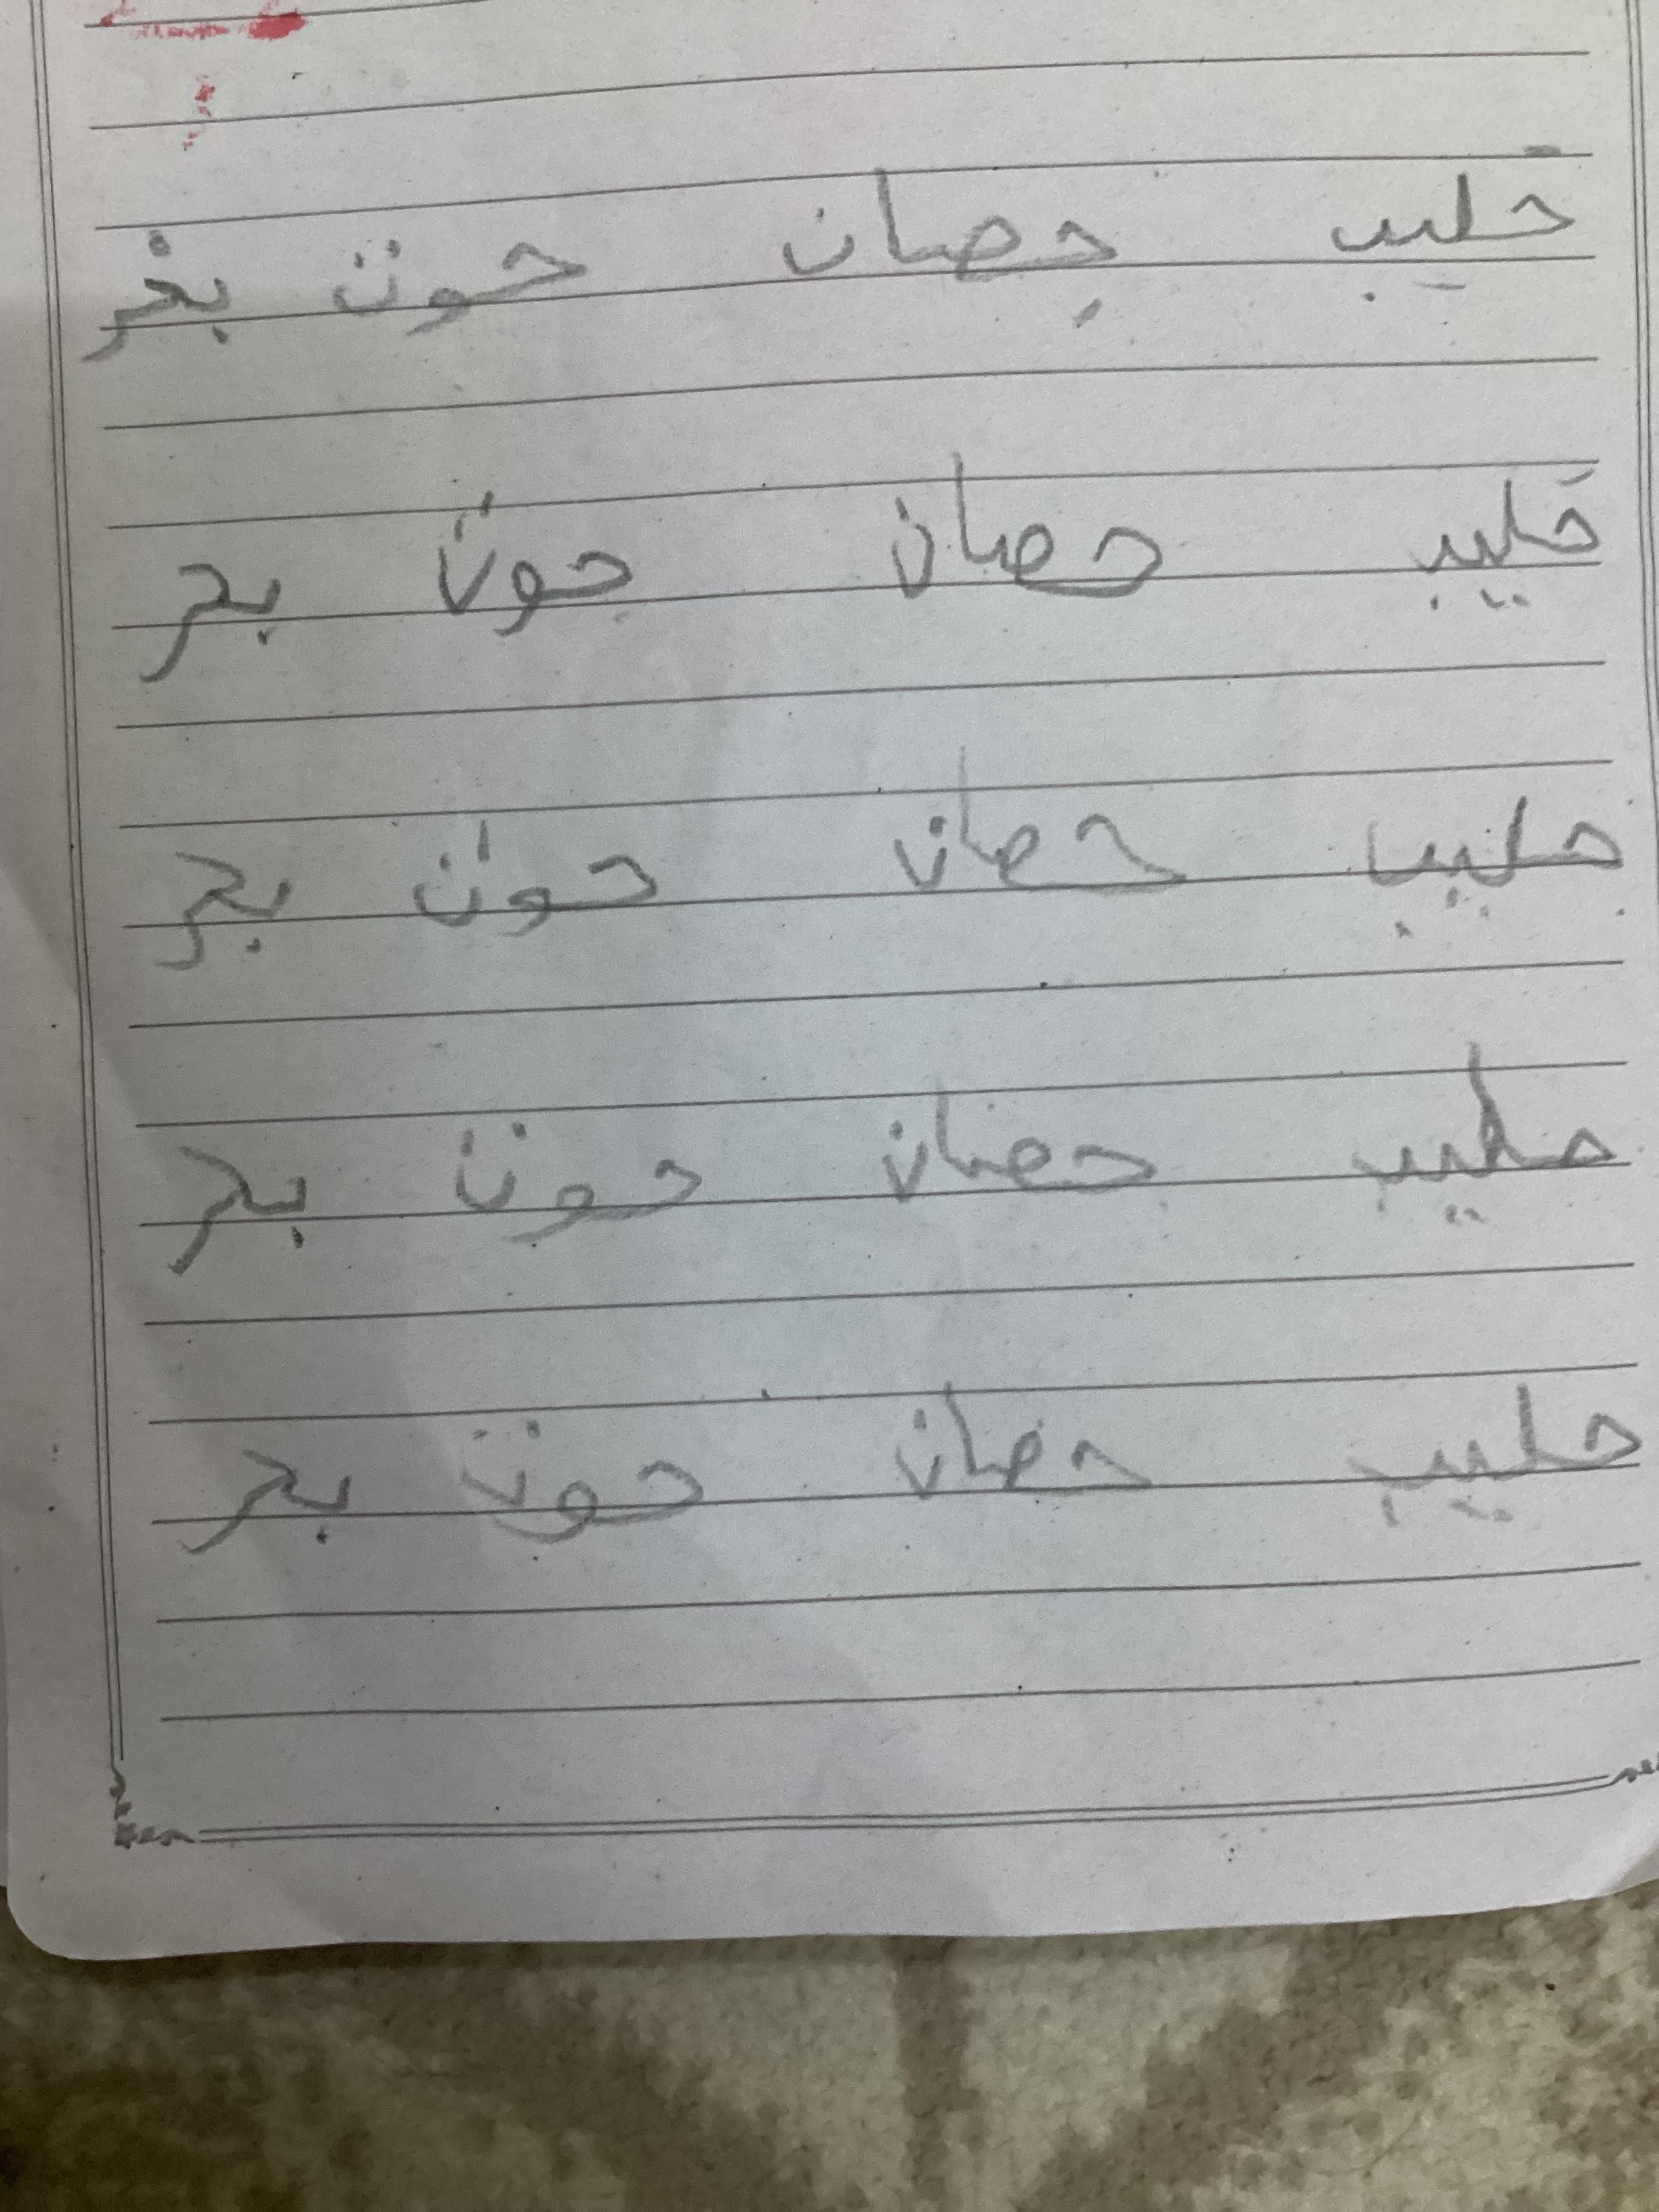 حَليب حِصان حوت بخر
حَليب حصان حوت بحر
حليب حصان حوت بحر
حليب حصان حوت بحر
حليب حصان حوت بحر